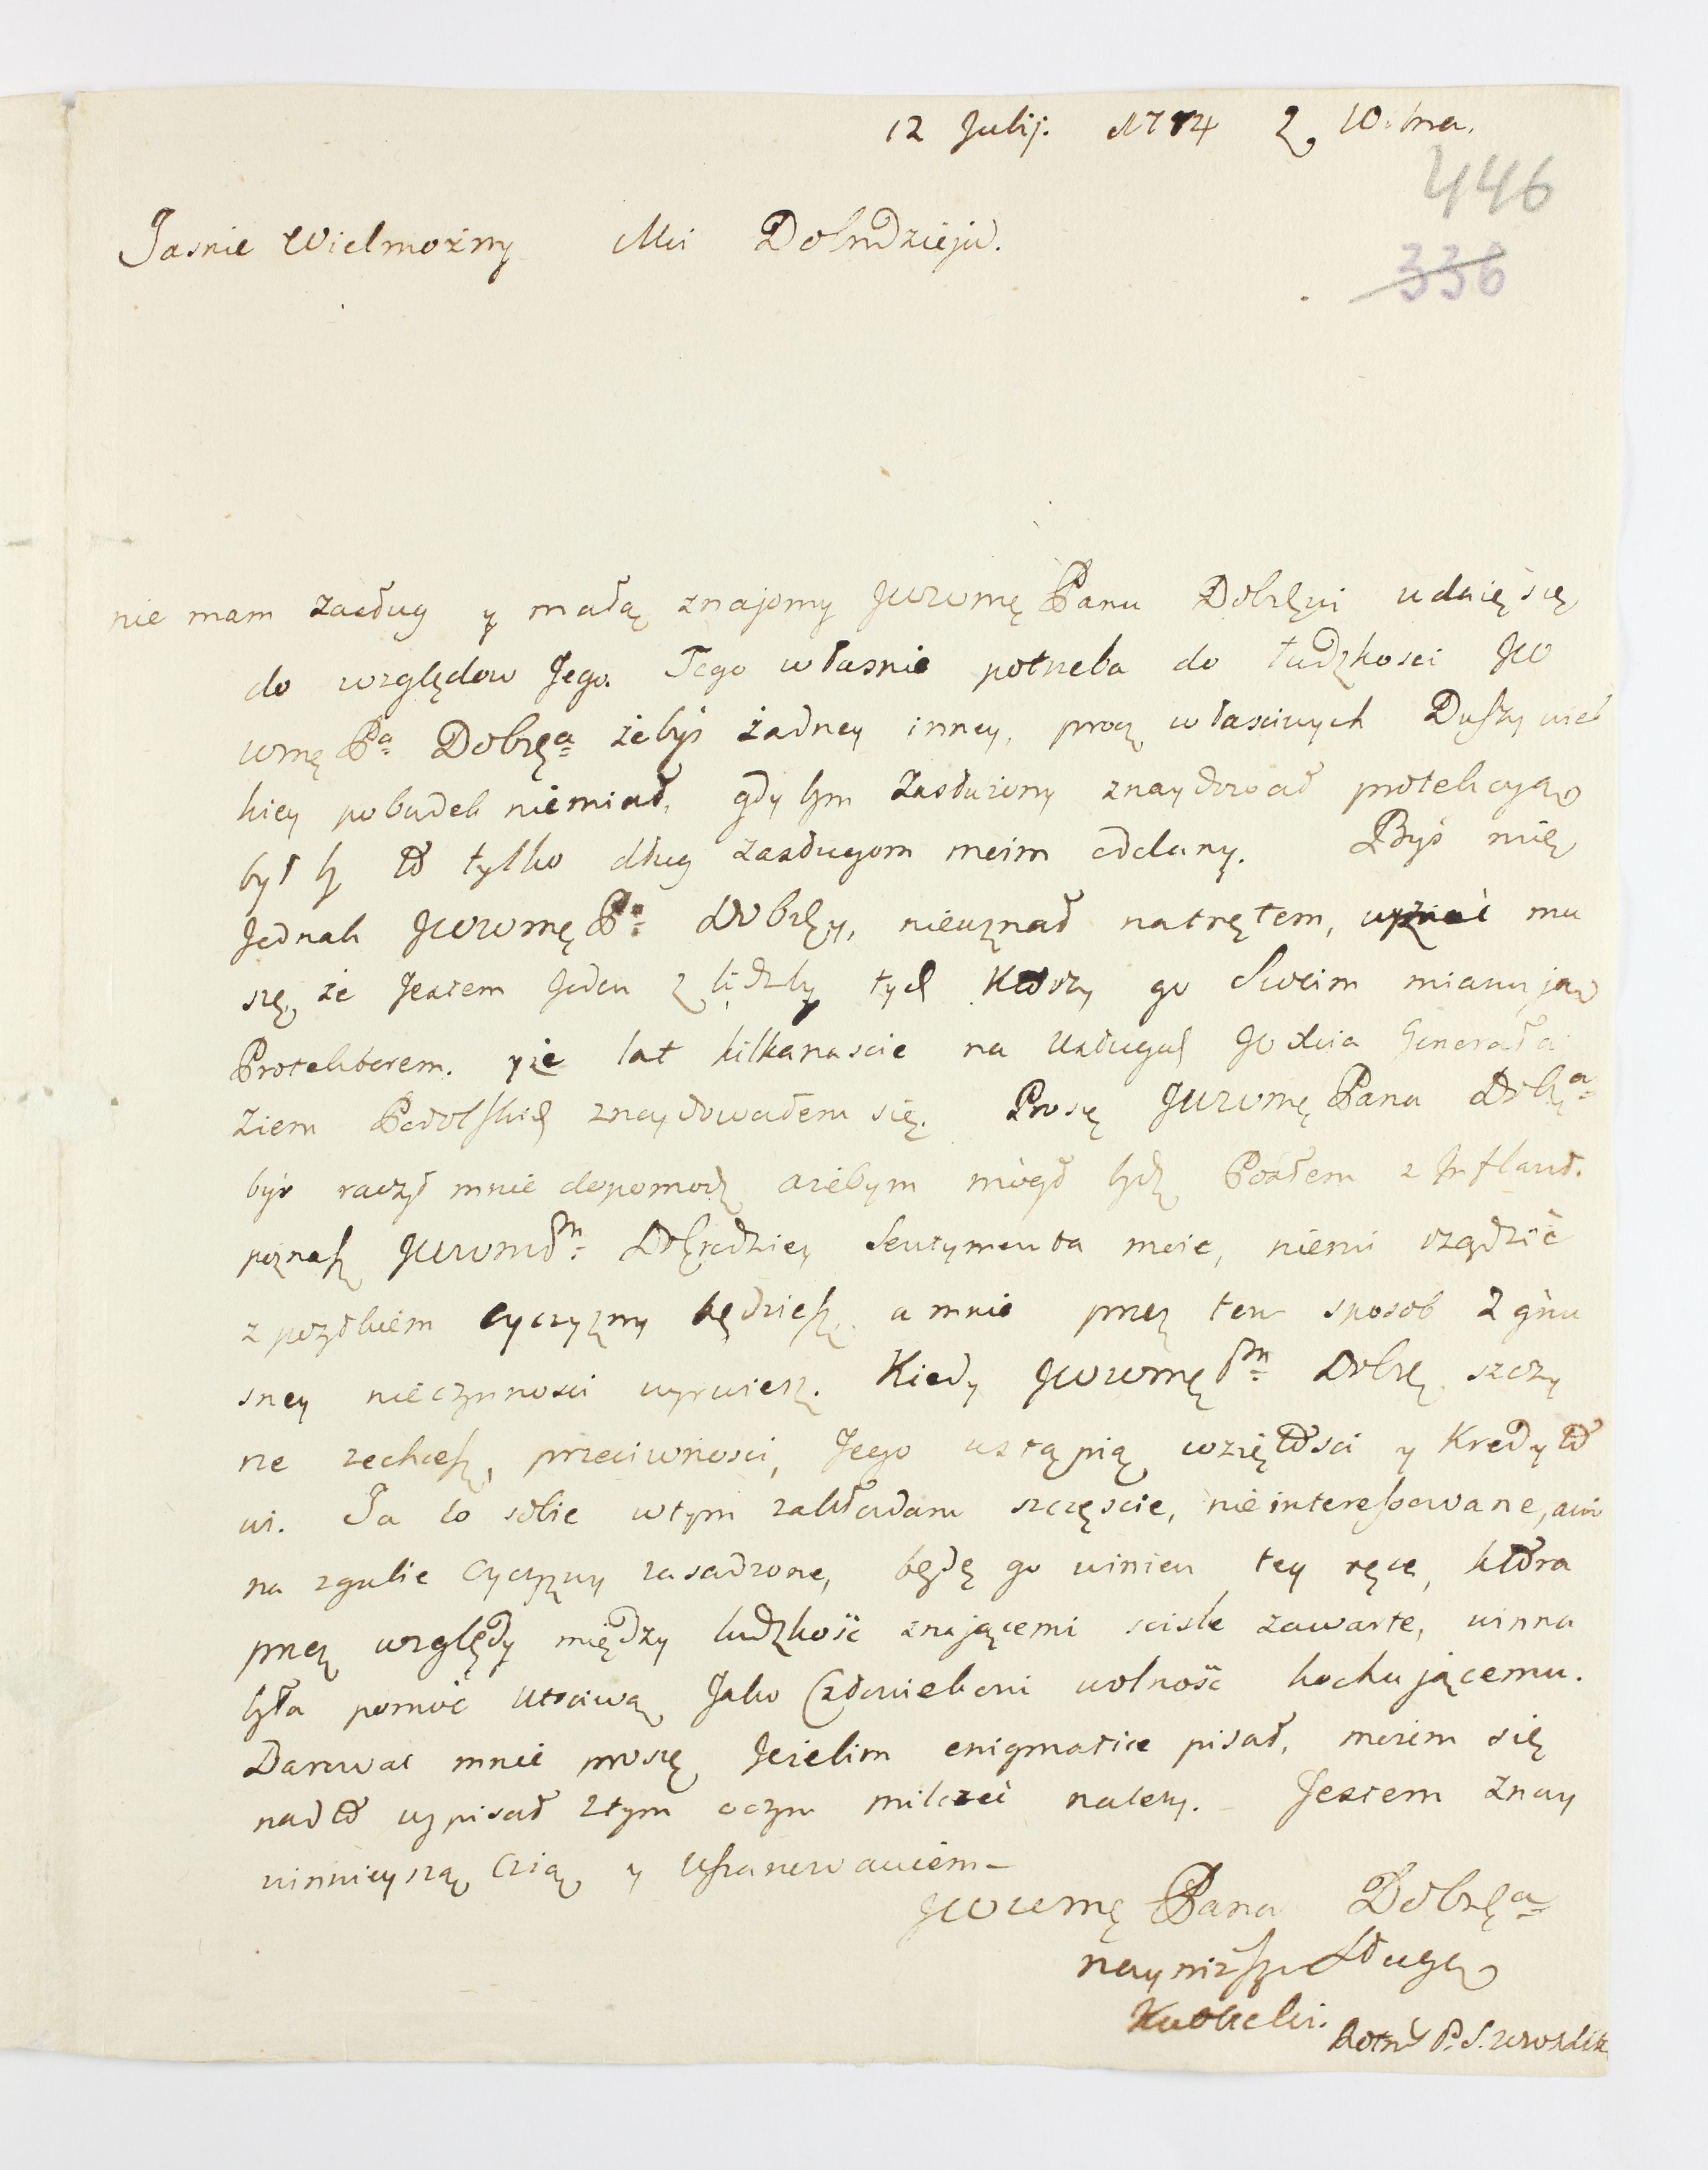 12 Julij. 1784 z Wilna.
446
336
Jasnie Wielmożny Mci Dobrodzieju.
nie mam zasług y małą znajomy JWWmę Panu Dobrzęwi udaię się
do względow Jego. Tego własnie potrzeba do ludzkosci JW
Wmę Pa Dobrzęa żebyś żadney inney, procz własciwych Duszy wiel
kiey pobudek niemiał, gdy bym zasłużony znaydował protekcyą
był by to tylko dług zasługom moim oddany. Byś mię
Jednak JWWmę Pa Dobrzęy, nieuznał natrętem, wyznać mu
szę, że Jestem Jeden z liczby tych ktorzy go Swoim mianują
Protektorem. yże lat kilkanascie na Usługach JO Xcia Generała
Ziem Podolskich znaydowałem się. Proszę JWWmę Pana Dobrzęa
byś raczył mnie dopomodz ażebym mógł bydz Posłem z Inflant.
poznasz JWWmę Pn Dobrodziey Sentymenta moie, niemi rządzić
z pożytkiem Oyczyzny będziesz, a mnie przez ten sposob z gnu
sney nieczynnosci wyrwiesz. Kiedy JWWmę Pn Dobrzę szczy
rze zechcesz, przeciwnosci, Jego ustąpią wziętosci y Kredyto
wi. Ja to sobie wtym zakładam szczęscie, nieinteressowane, ani
na zgubie Oyczyzny zasadzone, będę go winien tey ręce, ktora
przez względy między ludzkość znającemi sciśle zawarte, winna
była pomoc Utsciwą Jako Człowiekowi wolność kochującemu.
Darować mnie proszę Jeżelim enigmatice pisał, możem się
nadto wypisał ztym oczym milczeć należy. Jestem Znay
winnieyszą Czią y Uszanowaniem
JWWmę Pana Dobrzęa
nayniższy Sługa
Rotm P. S.